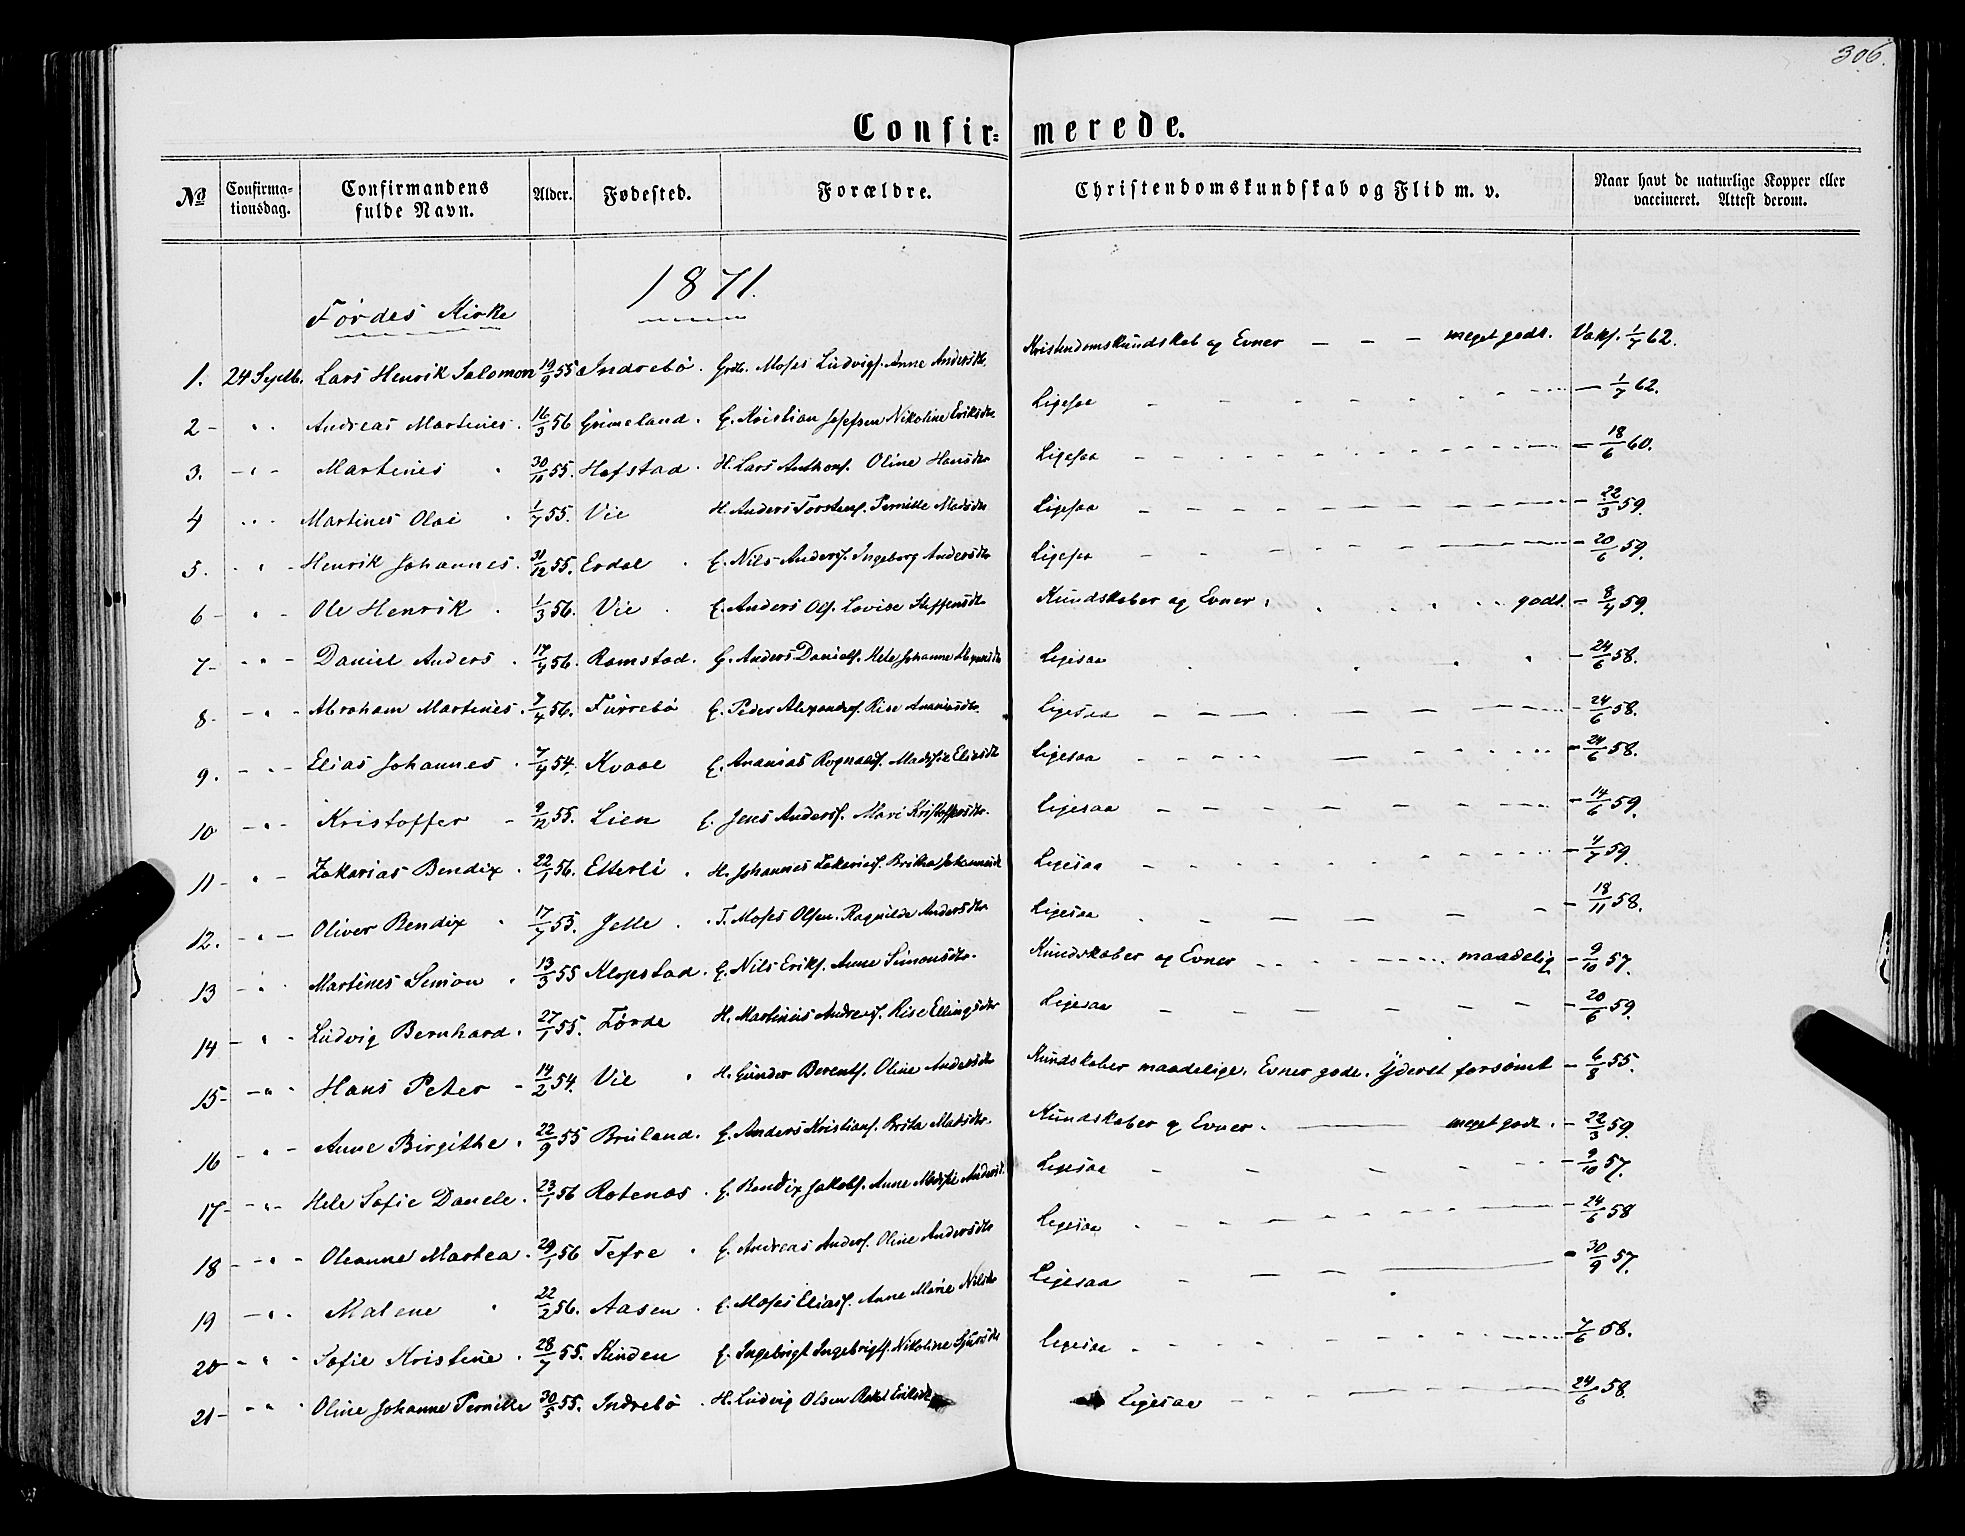 306.
Confir= merede.
No Confirma-tionsdag. Confirmandens fulde Navn. Alder. Fødested. Forældre. Christendomskundskab og Flid m. v. Naar havt de naturlige Kopper eller vaccineret. Attest derom.
1871.
Førdes Kirke
1. 24 Septb. Lars Henrik Salomon 19/9 55 Indrebö. Grdb. Moses Ludvigs. Anne Andersdtr. Kristendomskundskab og Evner — — — meget godt. Vaks. 1/7 62.
2 - " - Andreas Martines. 16/3 56 Grimeland. G. Kristian Josefsen Nikoline Eriksdtr Ligesaa — 1/7 62.
3. - " - Martines 30/10 55. Hafstad. H. Lars Anthons. Oline Hansdtr Ligesaa — 18/6 60.
4 - " - Martines Olai 1/7 55. Vie H. Anders Torstens. Pernille Madsdtr Ligesaa — 22/3 59.
5. - " - Henrik Johannes. 31/12 55. Erdal. G. Nils Anders. Ingeborg Andersdtr Ligesaa — 20/6 59.
6 - " - Ole Henrik. 1/3 56. Vie. G. Anders Ols. Lovise Steffensdtr Kundskaber og Evner . . . . godt. — 8/7 59.
7 - " - Daniel Anders. 17/4 56. Ramstad. G. Anders Daniels. Hele Johanne Mogensdtr Ligesaa — 24/6 58.
8. - " - Abraham Martines. 7/4 56. Furrebö G. Peder Alexanders. Lise Ananiasdtr. Ligesaa — 24/6 58.
9. - " - Elias Johannes. 7/4 54. Kvaal G. Ananias Rognalds. Madsie Eliasdtr Ligesaa — 24/6 58.
10 - " - Kristoffer 9/12 55. Lien G. Jens Anders. Mari Kristoffersdtr. Ligesaa — 14/6 59.
11 - " - Zakarias Bendix. 22/1 56. Etterli. H. Johannes Zakarias. Britha Johannesdtr Ligesaa — 4/7 59.
12. - " - Oliver Bendix 17/7 55. Jelle. T. Moses Olsen. Ragnilde Andersdtr. Ligesaa — 18/11 58.
13 - " - Martines Simon. 13/3 55 Klopstad. G. Nils Eriks. Anne Simonsdtr. Kundskaber og Evner — maadelig — 9/10 57.
14 - " - Ludvig Bernhard. 27/1 55. Förde H. Martinus Andreas. Lise Ellingsdtr Ligesaa — 20/6 59.
15 - " - Hans Peter - 14/2 54. Vie. H. Gunder Berents. Oline Andersdtr Kundskaber maadelige. Evner gode. Yderst forsömt — 6/8 55.
16 - " - Anne Birgithe. 22/9 55 Bruland. G. Anders Kristians. Brita Matsdtr. Kundskaber og Evner. — meget godt. — 22/3 59.
17 - " - Hele Sofie Danele. 23/1 56 Rotenæs. G. Bendix Jakobs. Anne Madsie Andersd. Ligesaa — 9/10 57.
18 - " - Oleanne Martea. 29/1 56 Tefre. G. Andreas Anders. Oline Andersdtr Ligesaa — 24/6 58
19 - " - Malene 22/2 56. Aasen. G. Moses Elias. Anne Marie Nilsdtr Ligesaa — 30/9 57.
20 - " - Sofie Kristine. 28/7 55. Kinden G. Ingebrigt Ingebrigts. Nikoline Sjursdtr Ligesaa — 7/6 58.
21 - " - Oline Johanne Pernille 30/5 55. Indrebö. H. Ludvig Olsen Rakel Eriksdtr Ligesaa — 24/6 58.